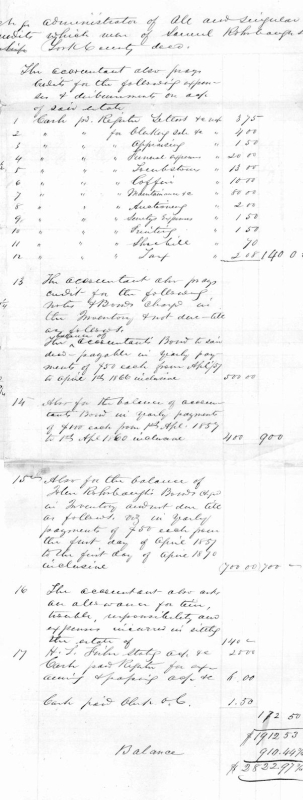 administrator of All and singular
credits which were of Samuel Rohrbaugh
York County decd.
The accountant also prays
credit for the following expen
ses & disbursements on acct
of said estate
1 Cash pd. Register Letters &c 3 75
2 " " for Clerking sale &c " 4 00
3 " " " Appraising " 1 50
4 " " " Funeral expenses " 20 00
5 " " " Tombstone " 13 00
6 " " " Coffin " 10 00
7 " " " Maintenance &c " 80 00
8 " " " Auctioneering " 2 00
9 " " " Sundry Expenses " 1 50
10 " " " Printing " 1 50
11 " " " Shoe bill " 70
12 " " " Tax " 2 08 140 0
13 The accountant also prays
credit for the following
notes & Bonds charged in
the Inventory & not due till
as follows
The balance of accountants Bond to said
decd. payable in yearly pay
ments of $50 each from April /57
to April 1st 1860 inclusive 500 00
14 Also for the balance of accoun
tants Bond in yearly payments
of $100 each from 1st Apl. 1857
to 1st Apl 1860 inclusive 400 900
15 Also for the balance of
John Rohrbaugh's Bonds
in Inventory and not due till
as follows. viz in yearly
payments of $50 each from
the first day of April 1857
to the first day of April 1870
inclusive 700 00 700
16 The accountant also asks
an allowance for time,
trouble, responsibility and
expenses incurred in settling
the estate of 140
17 stating acct. &c 25 00
Cash paid Register for exam
ining & passing acct &c 6.00
Cash paid Clerk O.C. 1.50
172 50
$1912.53
910.44
Balance $2822.97